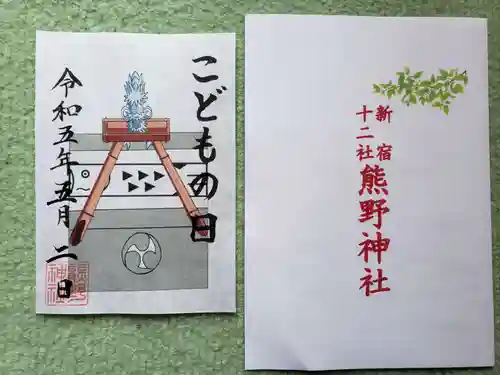 こどもの日
令和五年五月二日
新宿
十二社
熊野神社